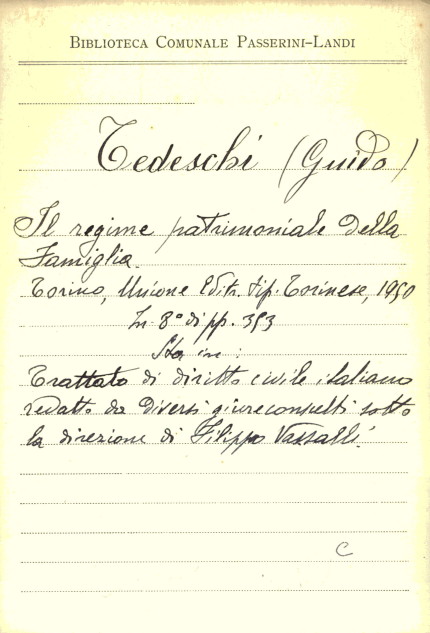 BIBLIOTECA COMUNALE PASSERINI-LANDI
Tedeschi (Guido)
Il regime patrimoniale della
Famiglia.
Torino, Unione Editr. tip. Torinese, 1950
In 8° di pp. 353
Sta in:
Trattato di diritto civile italiano
redatto da diversi giureconsulti sotto
la direzione di Filippo Vassalli.
C